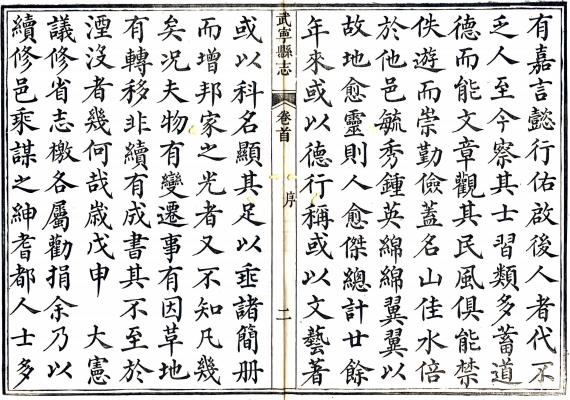 有嘉言懿行佑啟後人者代不
乏人至今察其士習類多蓄道
德而能文章觀其民風俱能禁
佚遊而崇勤儉蓋名山佳水倍
於他邑毓秀鍾英綿綿翼翼以
故地愈靈則人愈傑總計廿餘
年來或以德行稱或以文藝著
武寧縣志
卷首
序
二
或以科名顯其足以垂諸簡册
而增邦家之光者又不知凡幾
矣况夫物有變遷事有因草地
有轉移非續有成書其不至於
湮沒者幾何哉歲戊申 大憲
議修省志檄各屬勸捐余乃以
續修邑乘謀之紳耆都人士多